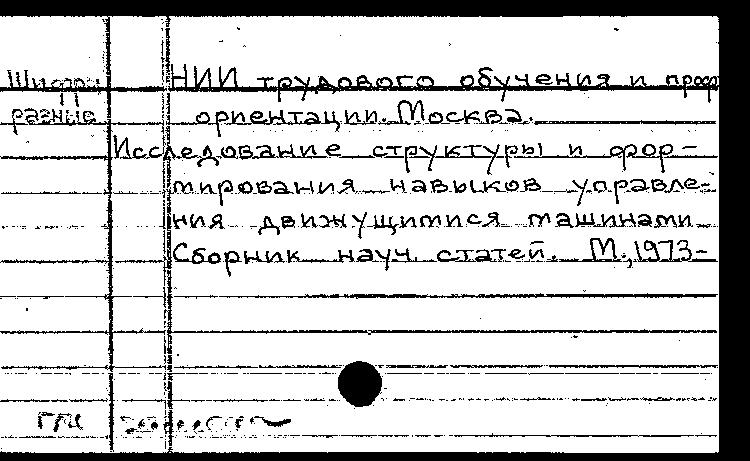 Шифры НИИ трудового обучения и проф
разные ориентации. Москва.
Исследование структуры и фор-
мирования навыков управле-
ния движущимися машинами
Сборник науч. статей. М., 1973-